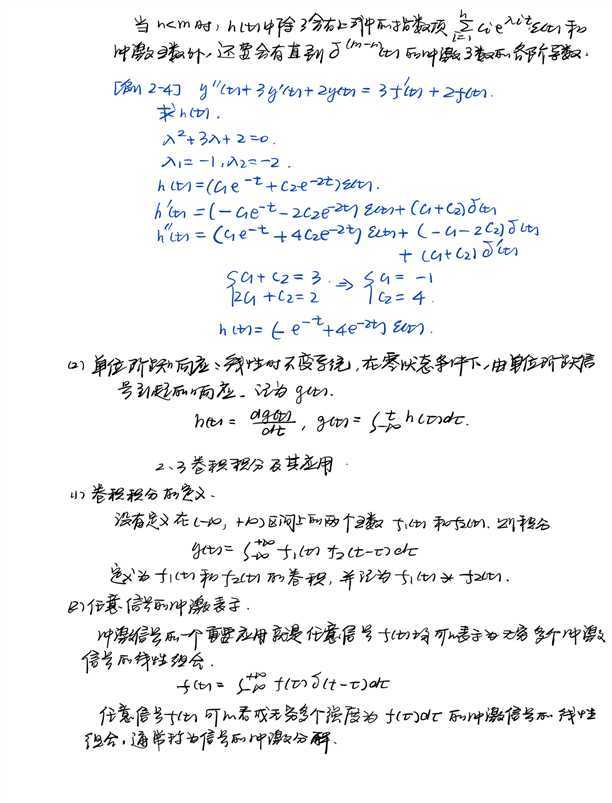 当n<m时，h(t)中除了含有上列中的指数项 ∑ᵢ₌₁ⁿ cᵢe^{λᵢt}ε(t)和
冲激函数外，还要会有直到δ^{(m-n)}(t)的冲激函数的各阶导数.
[例2-4] y''(t)+3y'(t)+2y(t)=3f'(t)+2f(t).
求h(t).
λ²+3λ+2=0.
λ₁=-1,λ₂=-2.
h(t)=(c₁e^{-t}+c₂e^{-2t})ε(t).
h'(t)=(-c₁e^{-t}-2c₂e^{-2t})ε(t)+(c₁+c₂)δ(t)
h''(t)=(c₁e^{-t}+4c₂e^{-2t})ε(t)+(-c₁-2c₂)δ(t)
+(c₁+c₂)δ'(t)
{c₁+c₂=3. ⇒ {c₁=-1
{2c₁+c₂=2 {c₂=4.
h(t)=(-e^{-t}+4e^{-2t})ε(t).
(2)单位阶跃响应：线性时不变系统，在零状态条件下，由单位阶跃信
号引起的响应。记为g(t).
h(t)=dg(t)/dt, g(t)=∫_{-∞}^{t}h(τ)dτ.
2.3卷积积分及其应用.
(1)卷积积分的定义.
设有定义在(-∞,+∞)区间上的两个函数f₁(t)和f₂(t).则积分
y(t)=∫_{-∞}^{+∞}f₁(τ)f₂(t-τ)dτ
定义为f₁(t)和f₂(t)的卷积，并记为f₁(t)*f₂(t).
(2)任意信号的冲激表示.
冲激信号的一个重要应用就是任意信号f(t)均可以表示为无穷多个冲激
信号的线性组合.
f(t)=∫_{-∞}^{+∞}f(τ)δ(t-τ)dτ
任意信号f(t)可以看成无穷多个强度为f(τ)dτ的冲激信号的线性
组合，通常称为信号的冲激分解.